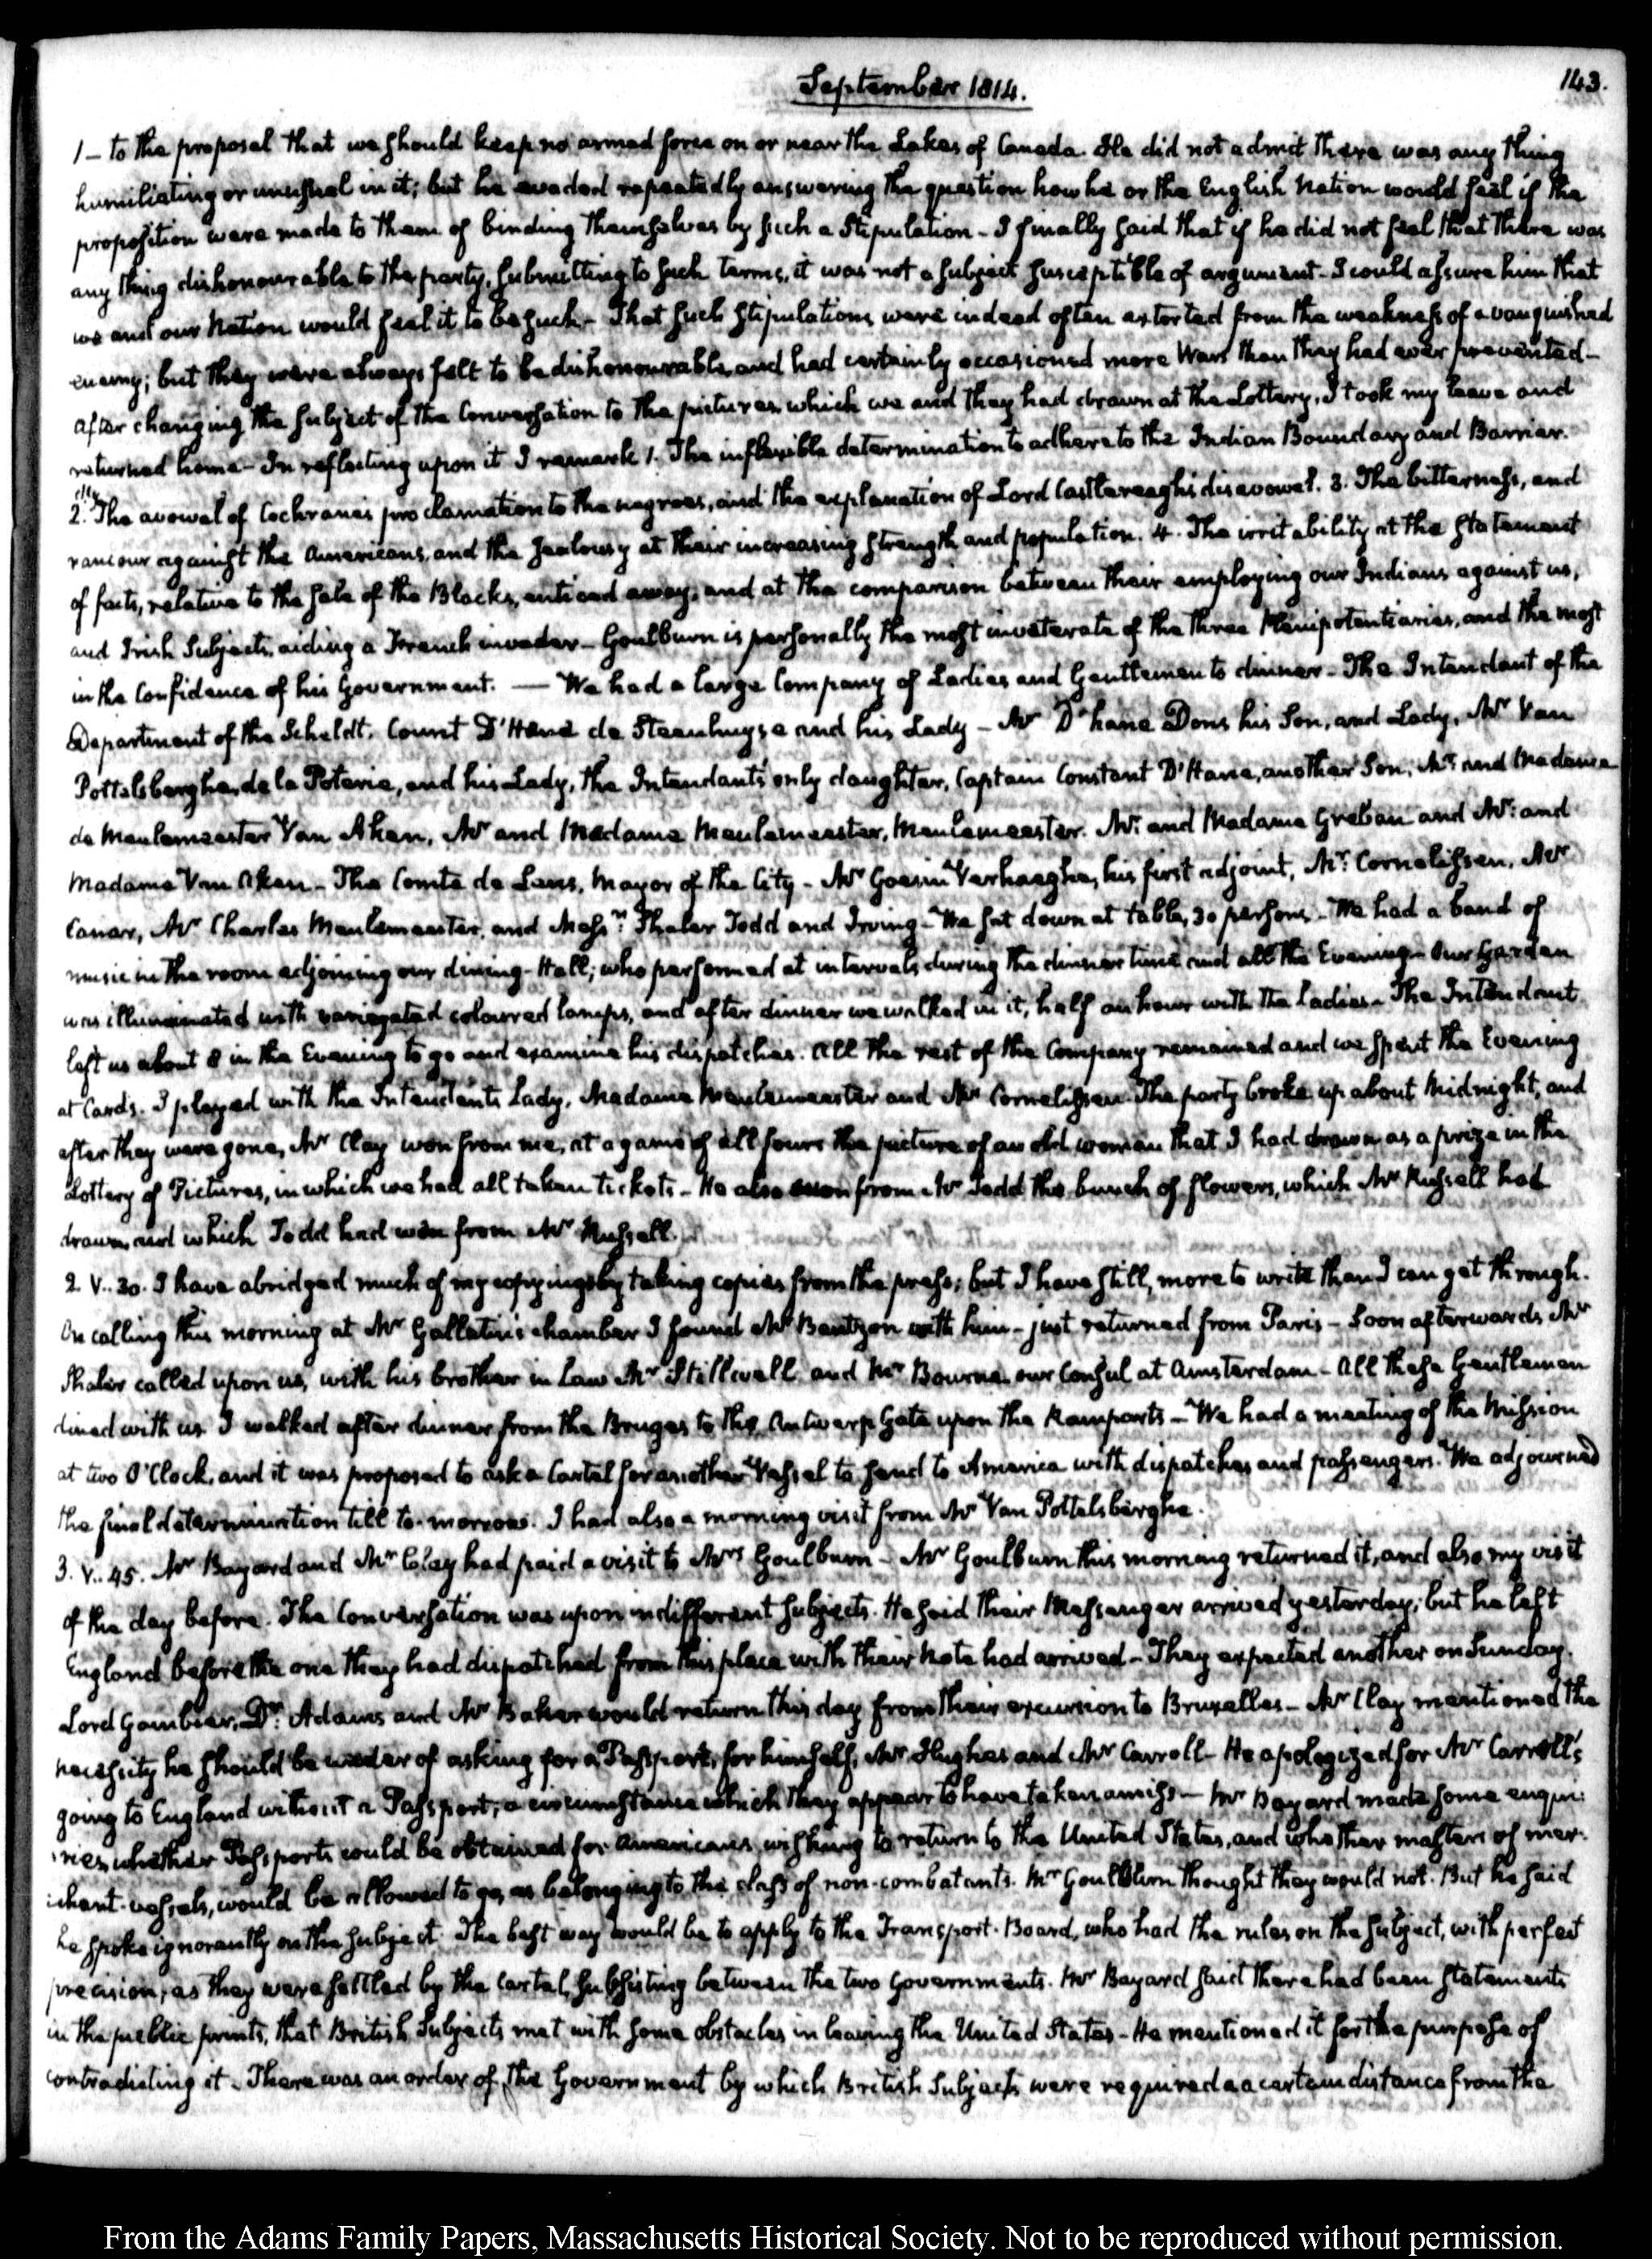 September 1814.
143.
1 – to the proposal that we should keep no armed force on or near the Lakes of Canada. He did not admit there was any thing
humiliating or unusual in it; but he evaded repeatedly answering the question how he or the English Nation would feel if the
proposition were made to them of binding themselves by such a Stipulation – I finally said that if he did not feel that there was
any thing dishonourable to the party, submitting to such terms, it was not a subject susceptible of argument – I could assure him that
we and our Nation would feel it to be such – That such stipulations were indeed often extorted from the weakness of a vanquished
enemy; but they were always felt to be dishonourable, and had certainly occasioned more Wars than they had ever prevented –
After changing the subject of the Conversation to the pictures, which we and they had drawn at the Lottery, I took my leave and
returned home – In reflecting upon it I remark 1. The inflexible determination to adhere to the Indian Boundary and Barrier.
2.dly The avowal of Cochrane's proclamation to the negroes, and the explanation of Lord Castlereagh's disavowal. 3. The bitterness, and
rancour against the Americans, and the jealousy at their increasing strength and population. 4. The irritability at the statement
of facts, relative to the sale of the Blacks, enticed away, and at the comparison between their employing our Indians against us,
and Irish Subjects, aiding a French invader – Goulburn is personally the most inveterate of the three Plenipotentiaries, and the most
in the Confidence of his Government. — We had a large Company of Ladies and Gentlemen to dinner – The Intendant of the
Department of the Scheldt, Count D'Hane de Steenhuyse and his Lady – Mr D'hane Dons his Son, and Lady, Mr Van
Pottelsberghe, de la Poterie, and his Lady, the Intendant's only daughter, Captain Constant D'Hane, another Son; Mr and Madame
de Meulemeester Van Aken, Mr and Madame Meulemeester, Meulemeester. Mr and Madame Greban and Mr and
Madame Van Aken – The Comte de Lens, Mayor of the City – Mr Goesin Verhaeghe, his first adjoint, Mr Cornelissen, Mr
Canar, Mr Charles Meulemeester, and Messrs Shaler Todd and Irving – We sat down at table, 30 persons – We had a band of
music in the room adjoining our dining-Hall; who performed at intervals during the dinner time and all the Evening – Our Garden
was illuminated with variegated coloured lamps, and after dinner we walked in it, half an hour with the ladies – The Intendant
left us about 8 in the Evening to go and examine his dispatches. All the rest of the Company remained and we spent the Evening
at Cards. I played with the Intendant's Lady, Madame Meulemeester and Mr Cornelissen. The party broke up about Midnight, and
after they were gone, Mr Clay won from me, at a game of all fours the picture of an old woman that I had drawn as a prize in the
Lottery of Pictures, in which we had all taken tickets – He also won from Mr Todd the bunch of flowers, which Mr Russell had
drawn, and which Todd had won from Mr Russell.
2. V..30. I have abridged much of my copyings by taking copies from the press; but I have still, more to write than I can get through.
On calling this morning at Mr Gallatin's chamber I found Mr Bentzon with him – just returned from Paris – Soon afterwards Mr
Shaler called upon us, with his brother in law Mr Stillwell, and Mr Bourne, our Consul at Amsterdam – All these Gentlemen
dined with us. I walked after dinner from the Bruges to the Antwerp Gate upon the Ramparts – We had a meeting of the Mission
at two O'Clock, and it was proposed to ask a Cartel for another Vessel to send to America with dispatches and passengers. We adjourned
the final determination till to-morrow. I had also a morning visit from Mr Van Pottelsberghe.
3. V..45. Mr Bayard and Mr Clay had paid a visit to Mrs Goulburn – Mr Goulburn this morning returned it, and also my visit
of the day before. The Conversation was upon indifferent subjects. He said their Messenger arrived yesterday; but he left
England before the one they had dispatched from this place with their Note had arrived – They expected another on Sunday.
Lord Gambier, Dr Adams and Mr Baker would return this day from their excursion to Bruxelles – Mr Clay mentioned the
necessity he should be under of asking for a Passport, for himself, Mr Hughes and Mr Carroll – He apologized for Mr Carroll's
going to England without a Passport; a circumstance which they appear to have taken amiss – Mr Bayard made some enqui:
:ries, whether Passports could be obtained for Americans, wishing to return to the United States, and whether masters of mer:
:chant-vessels, would be allowed to go, as belonging to the class of non-combatants. Mr Goulburn thought they would not. But he said
he spoke ignorantly on the subject. The best way would be to apply to the Transport-Board, who had the rules on the subject, with perfect
precision, as they were settled by the Cartel, subsisting between the two Governments. Mr Bayard said there had been statements
in the public prints, that British Subjects met with some obstacles in leaving the United States – He mentioned it for the purpose of
contradicting it – There was an order of the Government by which British Subjects were required a certain distance from the
From the Adams Family Papers, Massachusetts Historical Society. Not to be reproduced without permission.